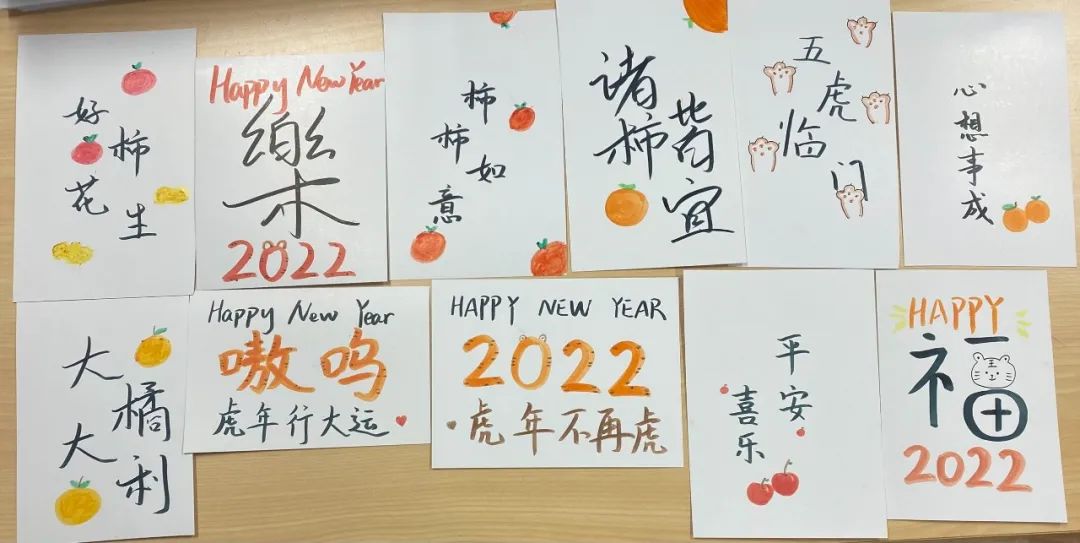 好柿花生
Happy New Year
樂
2022
柿柿如意
诸柿皆宜
五虎临门
心想事成
大橘大利
Happy New Year
嗷呜
虎年行大运
HAPPY NEW YEAR
2022
虎年不再虎
平安
喜乐
HAPPY
福
2022